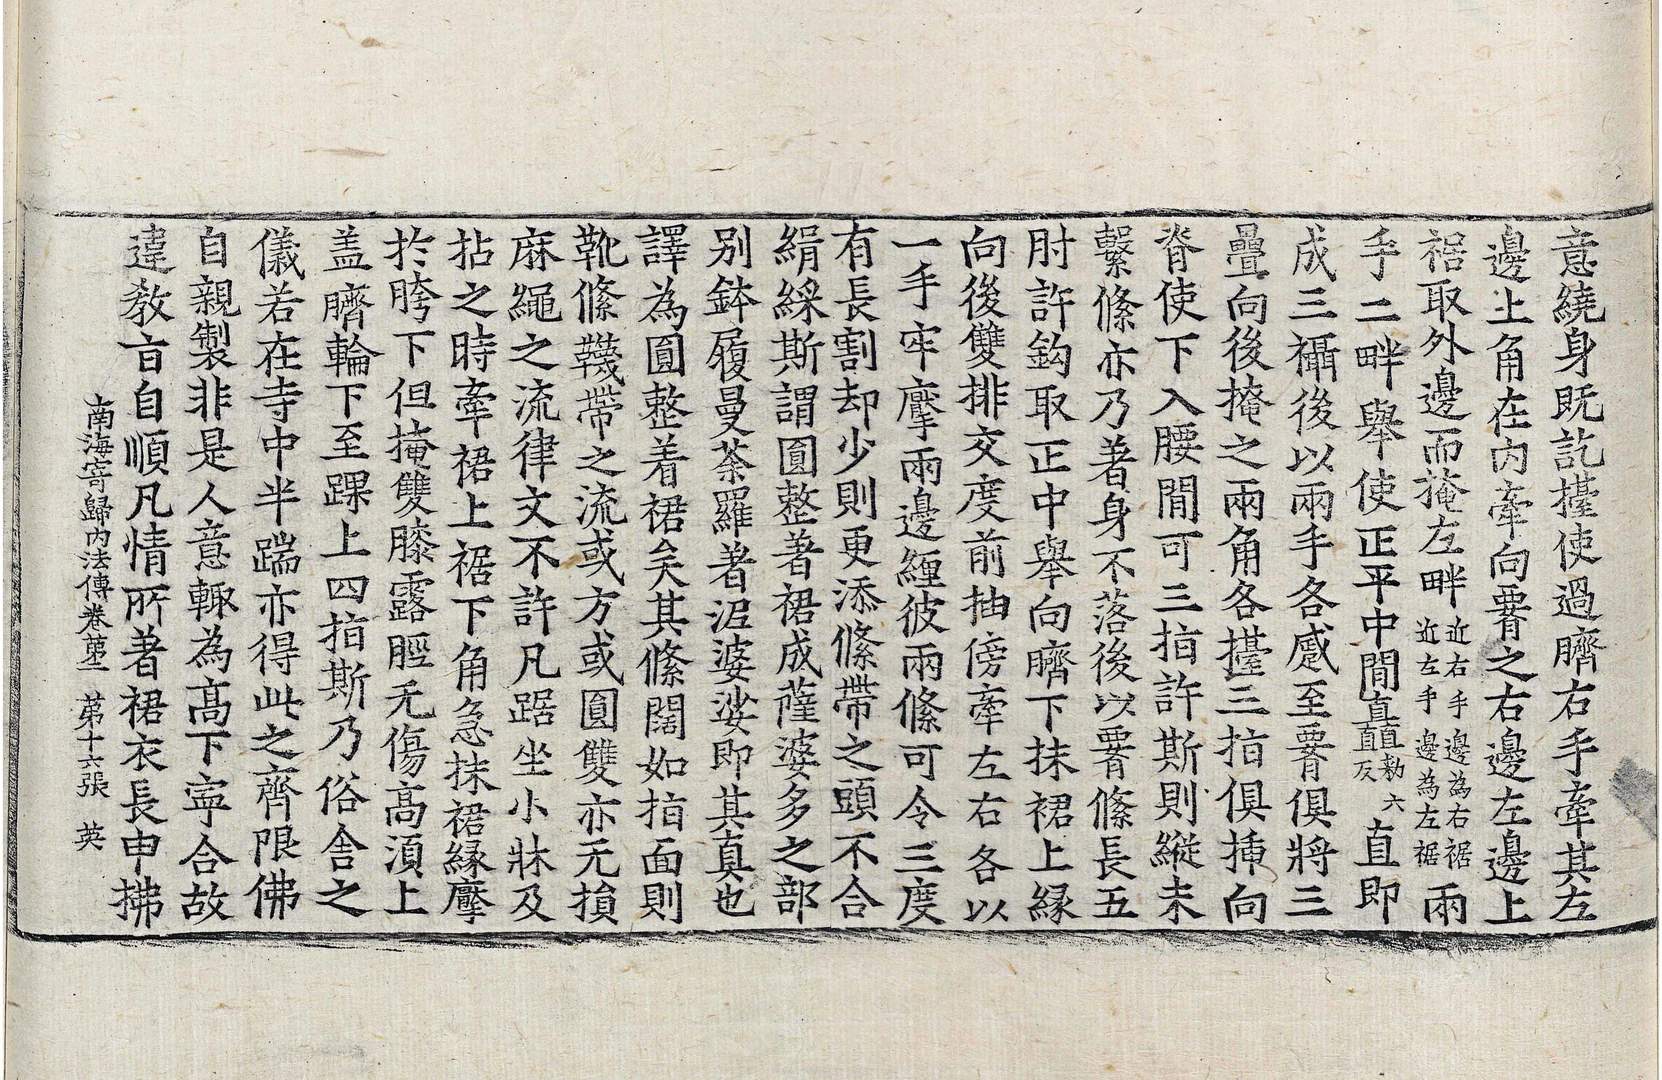 意繞身既訖擡使過臍右手牽其左
邊上角在内牽向䯗之右邊左邊上
裾取外邊而掩左畔近右手邊為右裾近左手邊為左裾兩
手二畔舉使正平中間矗勑六反直即
成三攝後以兩手各慼至䯗俱將三
疊向後掩之兩角各擡三指俱插向
脊使下入腰間可三指許斯則縱未
繫絛亦乃著身不落後以䯗絛長五
肘許鈎取正中舉向臍下抹裙上緣
向後雙排交度前抽傍牽左右各以
一手牢摩兩邊纏彼兩絛可令三度
有長割却少則更添絛帶之頭不合
緝綵斯謂圓整著裙成薩婆多之部
别鉢履曼荼羅著泥婆娑即其真也
譯為圓整着裙矣其絛闊如指面則
靴絛韈帶之流或方或圓雙亦无損
麻繩之流律文不許凡踞坐小牀及
拈之時牽裙上裾下角急抹裙緣壓
於胯下但掩雙膝露脛无傷高湏上
盖臍輪下至踝上四指斯乃俗舍之
儀若在寺中半踹亦得此之齊限佛
自親製非是人意輙為高下寧合故
違教旨自順凡情所著裙衣長申拂
南海寄歸内法傳卷苐二 苐十六張 英